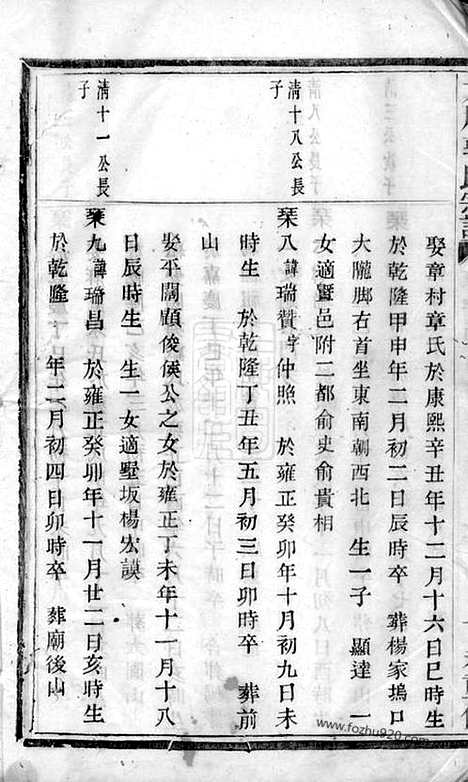 娶章村章氏於康熙辛丑年十二月十六日巳時生
於乾隆甲申年二月初二日辰時卒 葬楊家塢口
大隴脚右首坐東南朝西北 生一子 顯達 一
女適暨邑附二都俞史俞貴相
清十八公長
子
琹八諱瑞贊字仲照 於雍正癸卯年十月初九日未
時生 於乾隆丁丑年五月初三日卯時卒 葬前
山
娶平闊顯俊侯公之女於雍正丁未年十一月十八
日辰時生 生一女適墅坂楊宏謨
清十一公長
子
琹九諱瑞昌 於雍正癸卯年十一月廿二日亥時生
於乾隆 年二月初四日卯時卒 葬廟後山
www.fozhu920.com